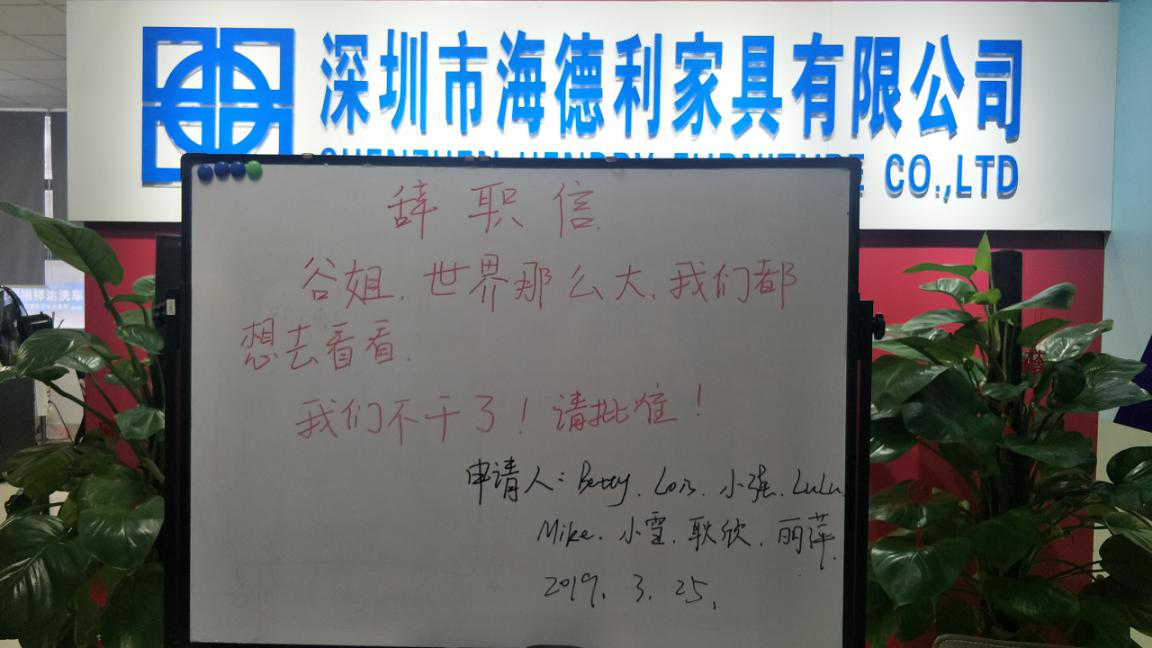 深圳市海德利家具有限公司
CO.,LTD
辞职信
谷姐、世界那么大、我们都
想去看看.
我们不干了！请批准！
申请人：Betty、Lois、小强、LuLu、
Mike、小雪、耿欣、丽萍.
2019.3.25.
祥达洗车